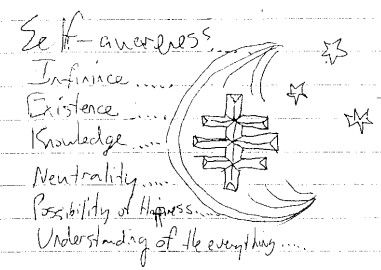 Self-awareness.....
Infinince.....
Existence.....
Knowledge.....
Neutrality.....
Possibility of Happness...
Understanding of the everything....